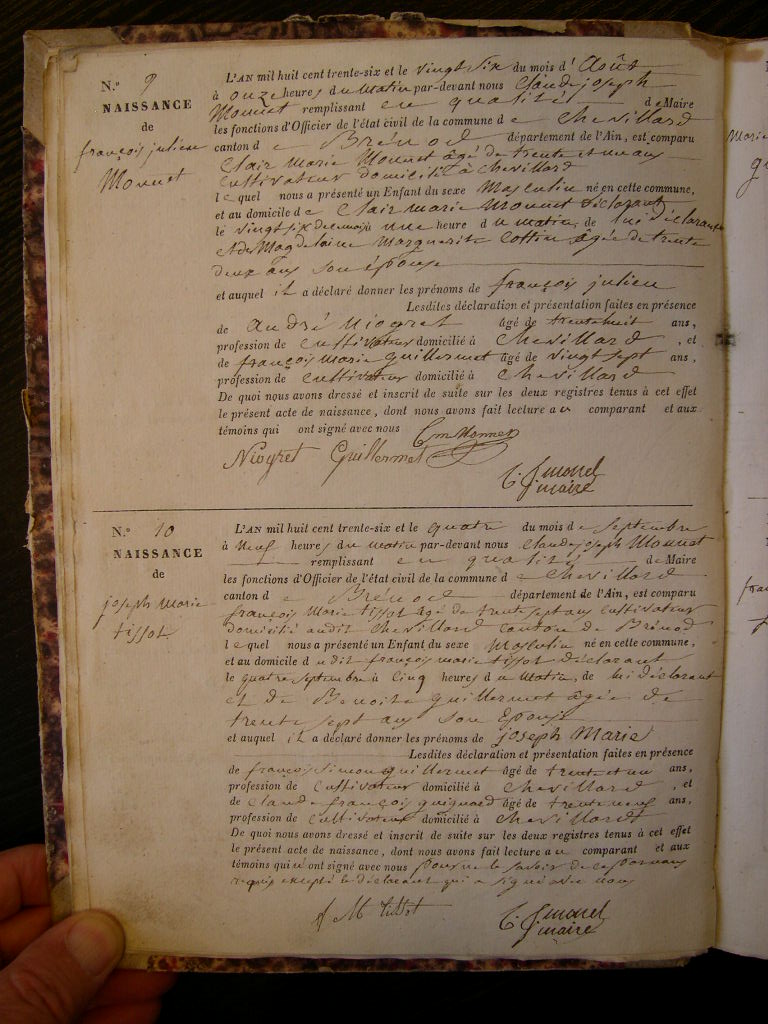 N.° 9
NAISSANCE
de
françois julien
Monnet
L'AN mil huit cent trente-six et le vingt six du mois d' Août
à onze heures du matin par-devant nous Claude joseph
Monnet remplissant en qualité de Maire
les fonctions d'Officier de l'état civil de la commune de Chevillard
canton de Brénod département de l'Ain, est comparu
Clair Marie Monnet âgé de trente et un ans
Cultivateur domicilié à Chevillard
lequel nous a présenté un Enfant du sexe Masculin né en cette commune,
et au domicile de Clair marie Monnet déclarant
le vingt six du mois à une heure du matin, de lui déclarant
et de Magdelaine Marguerite Cottin âgée de trente
deux ans son épouse
et auquel il a déclaré donner les prénoms de françois julien
Lesdites déclaration et présentation faites en présence
de andré Niogret âgé de trente huit ans,
profession de Cultivateur domicilié à Chevillard , et
de françois Marie Guillermet âgé de vingt sept ans,
profession de Cultivateur domicilié à Chevillard
De quoi nous avons dressé et inscrit de suite sur les deux registres tenus à cet effet
le présent acte de naissance, dont nous avons fait lecture au comparant et aux
témoins qui ont signé avec nous Cm Monnet
Niogret Guillermet
maire
N.° 10
NAISSANCE
de
joseph Marie
tissot
L'AN mil huit cent trente-six et le quatre du mois de Septembre
à Neuf heures du matin par-devant nous Claude joseph Monnet
remplissant en qualité de Maire
les fonctions d'Officier de l'état civil de la commune de Chevillard
canton de Brénod département de l'Ain, est comparu
françois Marie tissot âgé de trente sept ans cultivateur
domicilié audit Chevillard canton de Brénod
lequel nous a présenté un Enfant du sexe Masculin né en cette commune,
et au domicile dudit françois marie tissot déclarant
le quatre septembre à Cinq heures du Matin, de lui déclarant
et de Benoite Guillermet âgée de
trente sept ans son Epouse
et auquel il a déclaré donner les prénoms de joseph Marie
Lesdites déclaration et présentation faites en présence
de françois Simon guillermet âgé de trente et un ans,
profession de Cultivateur domicilié à Chevillard , et
de Claude françois guignard âgé de trente neuf ans,
profession de Cultivateur domicilié à Chevillard
De quoi nous avons dressé et inscrit de suite sur les deux registres tenus à cet effet
le présent acte de naissance, dont nous avons fait lecture au comparant et aux
témoins qui n'ont signé avec nous pour ne le savoir de ce
requis excepté le déclarant qui a signé avec nous
f M tissot
maire